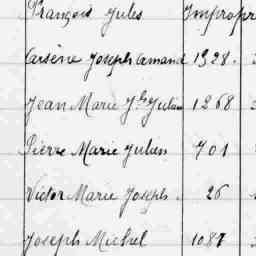 François Jules Impropr
Arsène Joseph Amand 1328.
Jean Marie Julien 1268
Pierre Marie Julien 701
Victor Marie Joseph 26
Joseph Michel 1087